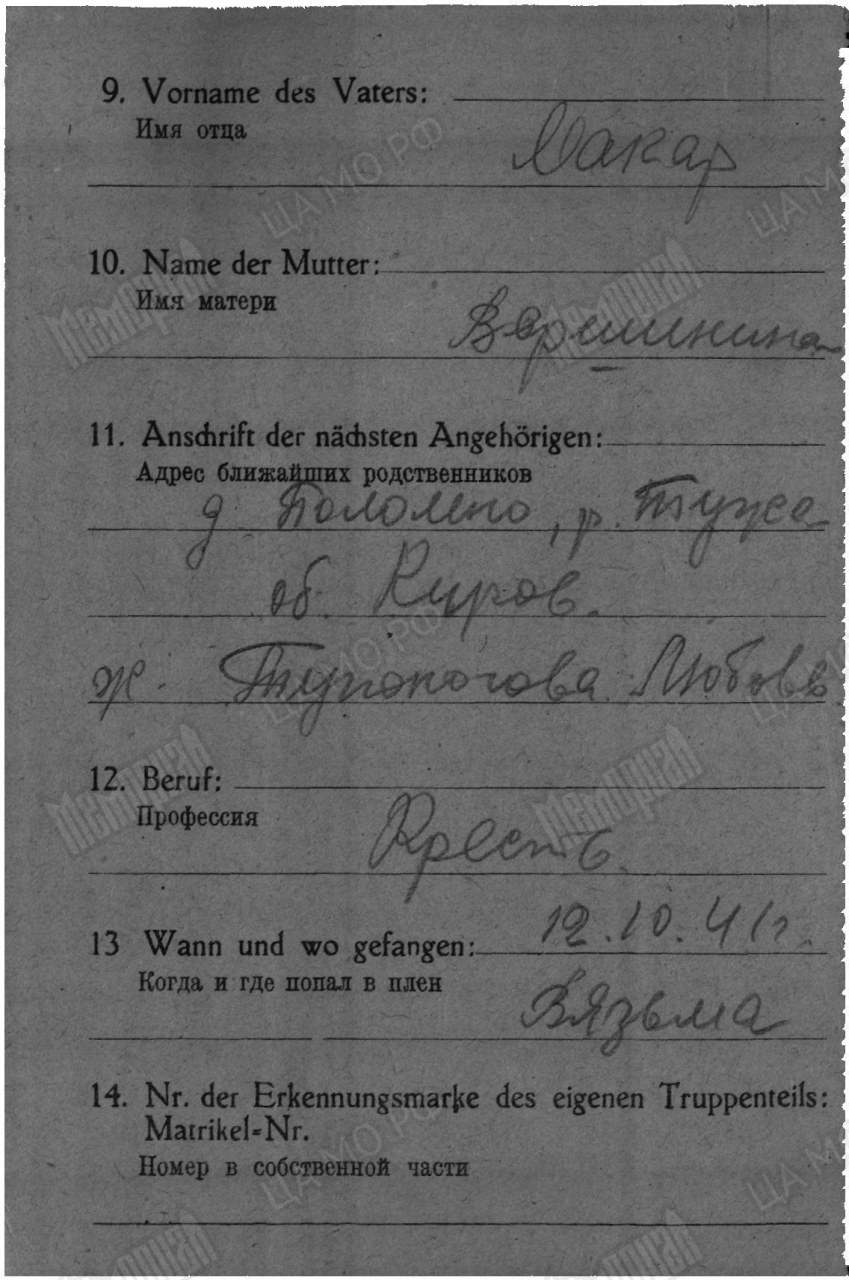 9. Vorname des Vaters:
Имя отца
Макар
10. Name der Mutter:
Имя матери
Вершинина
11. Anschrift der nächsten Angehörigen:
Адрес ближайших родственников
д. Паломно, р. Тужа
об. Киров.
ж. Тупоногова Любовь
12. Beruf:
Профессия
Крест.
13 Wann und wo gefangen: 12.10.41г.
Когда и где попал в плен
Вязьма
14. Nr. der Erkennungsmarke des eigenen Truppenteils:
Matrikel=Nr.
Номер в собственной части
Мемориал
ЦА МО РФ